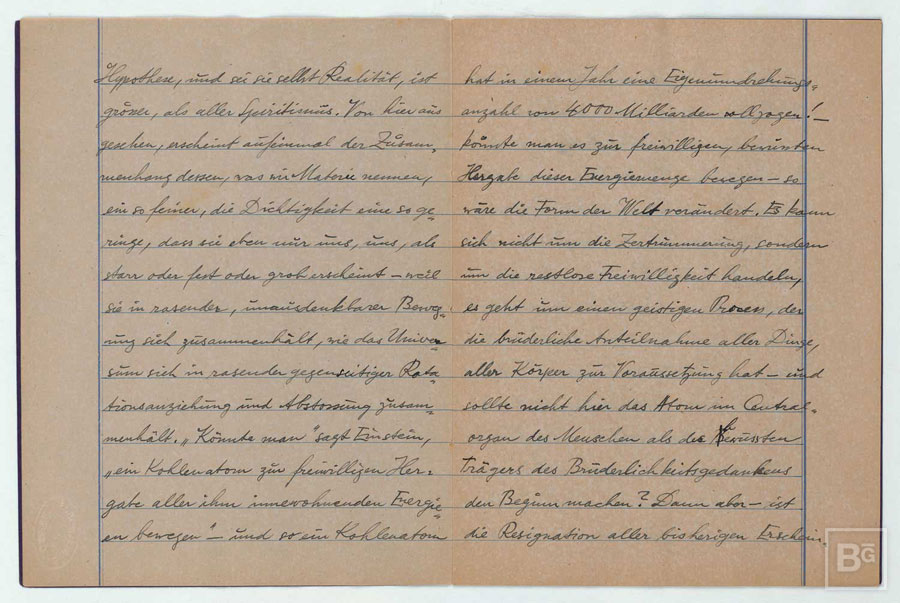 Hypothese, und sei sie selbst Realität, ist
grösser, als aller Spiritismus. Von hier aus
gesehen, erscheint aufeinmal der Zusam-
menhang dessen, was wir Materie nennen,
ein so feiner, die Dichtigkeit eine so ge-
ringe, dass sie eben nur uns, uns, als
starr oder fest oder grob erscheint – weil
sie in rasender, unausdenkbarer Beweg-
ung sich zusammenhält, wie das Univer-
sum sich in rasender gegenseitiger Rota-
tionsanziehung und Abstossung zusam-
menhält. „Könnte man" sagt Einstein,
„ein Kohlenatom zur freiwilligen Her-
gabe aller ihm innewohnenden Energie-
en bewegen" – und so ein Kohlenatom
hat in einem Jahr eine Eigenumdrehungs-
anzahl von 4000 Milliarden vollzogen! –
könnte man es zur freiwilligen, bewussten
Hergabe dieser Energiemenge bewegen – so
wäre die Form der Welt verändert. Es kann
sich nicht um die Zertrümmerung, sondern
um die restlose Freiwilligkeit handeln,
es geht um einen geistigen Process, der
die brüderliche Anteilnahme aller Dinge,
aller Körper zur Voraussetzung hat – und
sollte nicht hier das Atom im Central-
organ des Menschen als des Bewussten
Trägers des Brüderlichkeitsgedankens
den Beginn machen? Dann aber – ist
die Resignation aller bisherigen Erschein-
BG